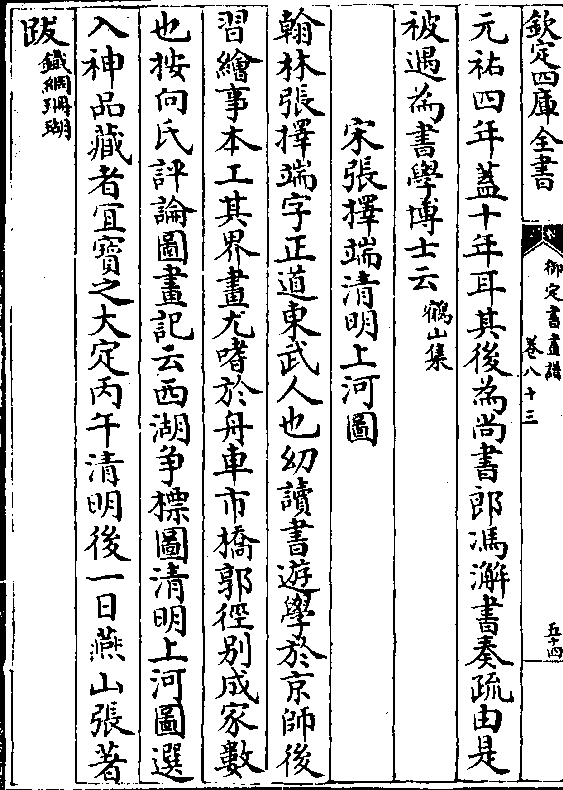 欽定四庫全書
御定書畫譜
卷八十三
五十四
元祐四年蓋十年耳其後為尚書郎馮澥書奏疏由是
被遇為書學博士云鶴山集
宋張擇端清明上河圖
翰林張擇端字正道東武人也幼讀書遊學於京師後
習繪事本工其界畫尤嗜於舟車市橋郭徑别成家數
也按向氏評論圖畫記云西湖争標圖清明上河圖選
入神品藏者宜寳之大定丙午清明後一日燕山張著
跋鐵網珊瑚